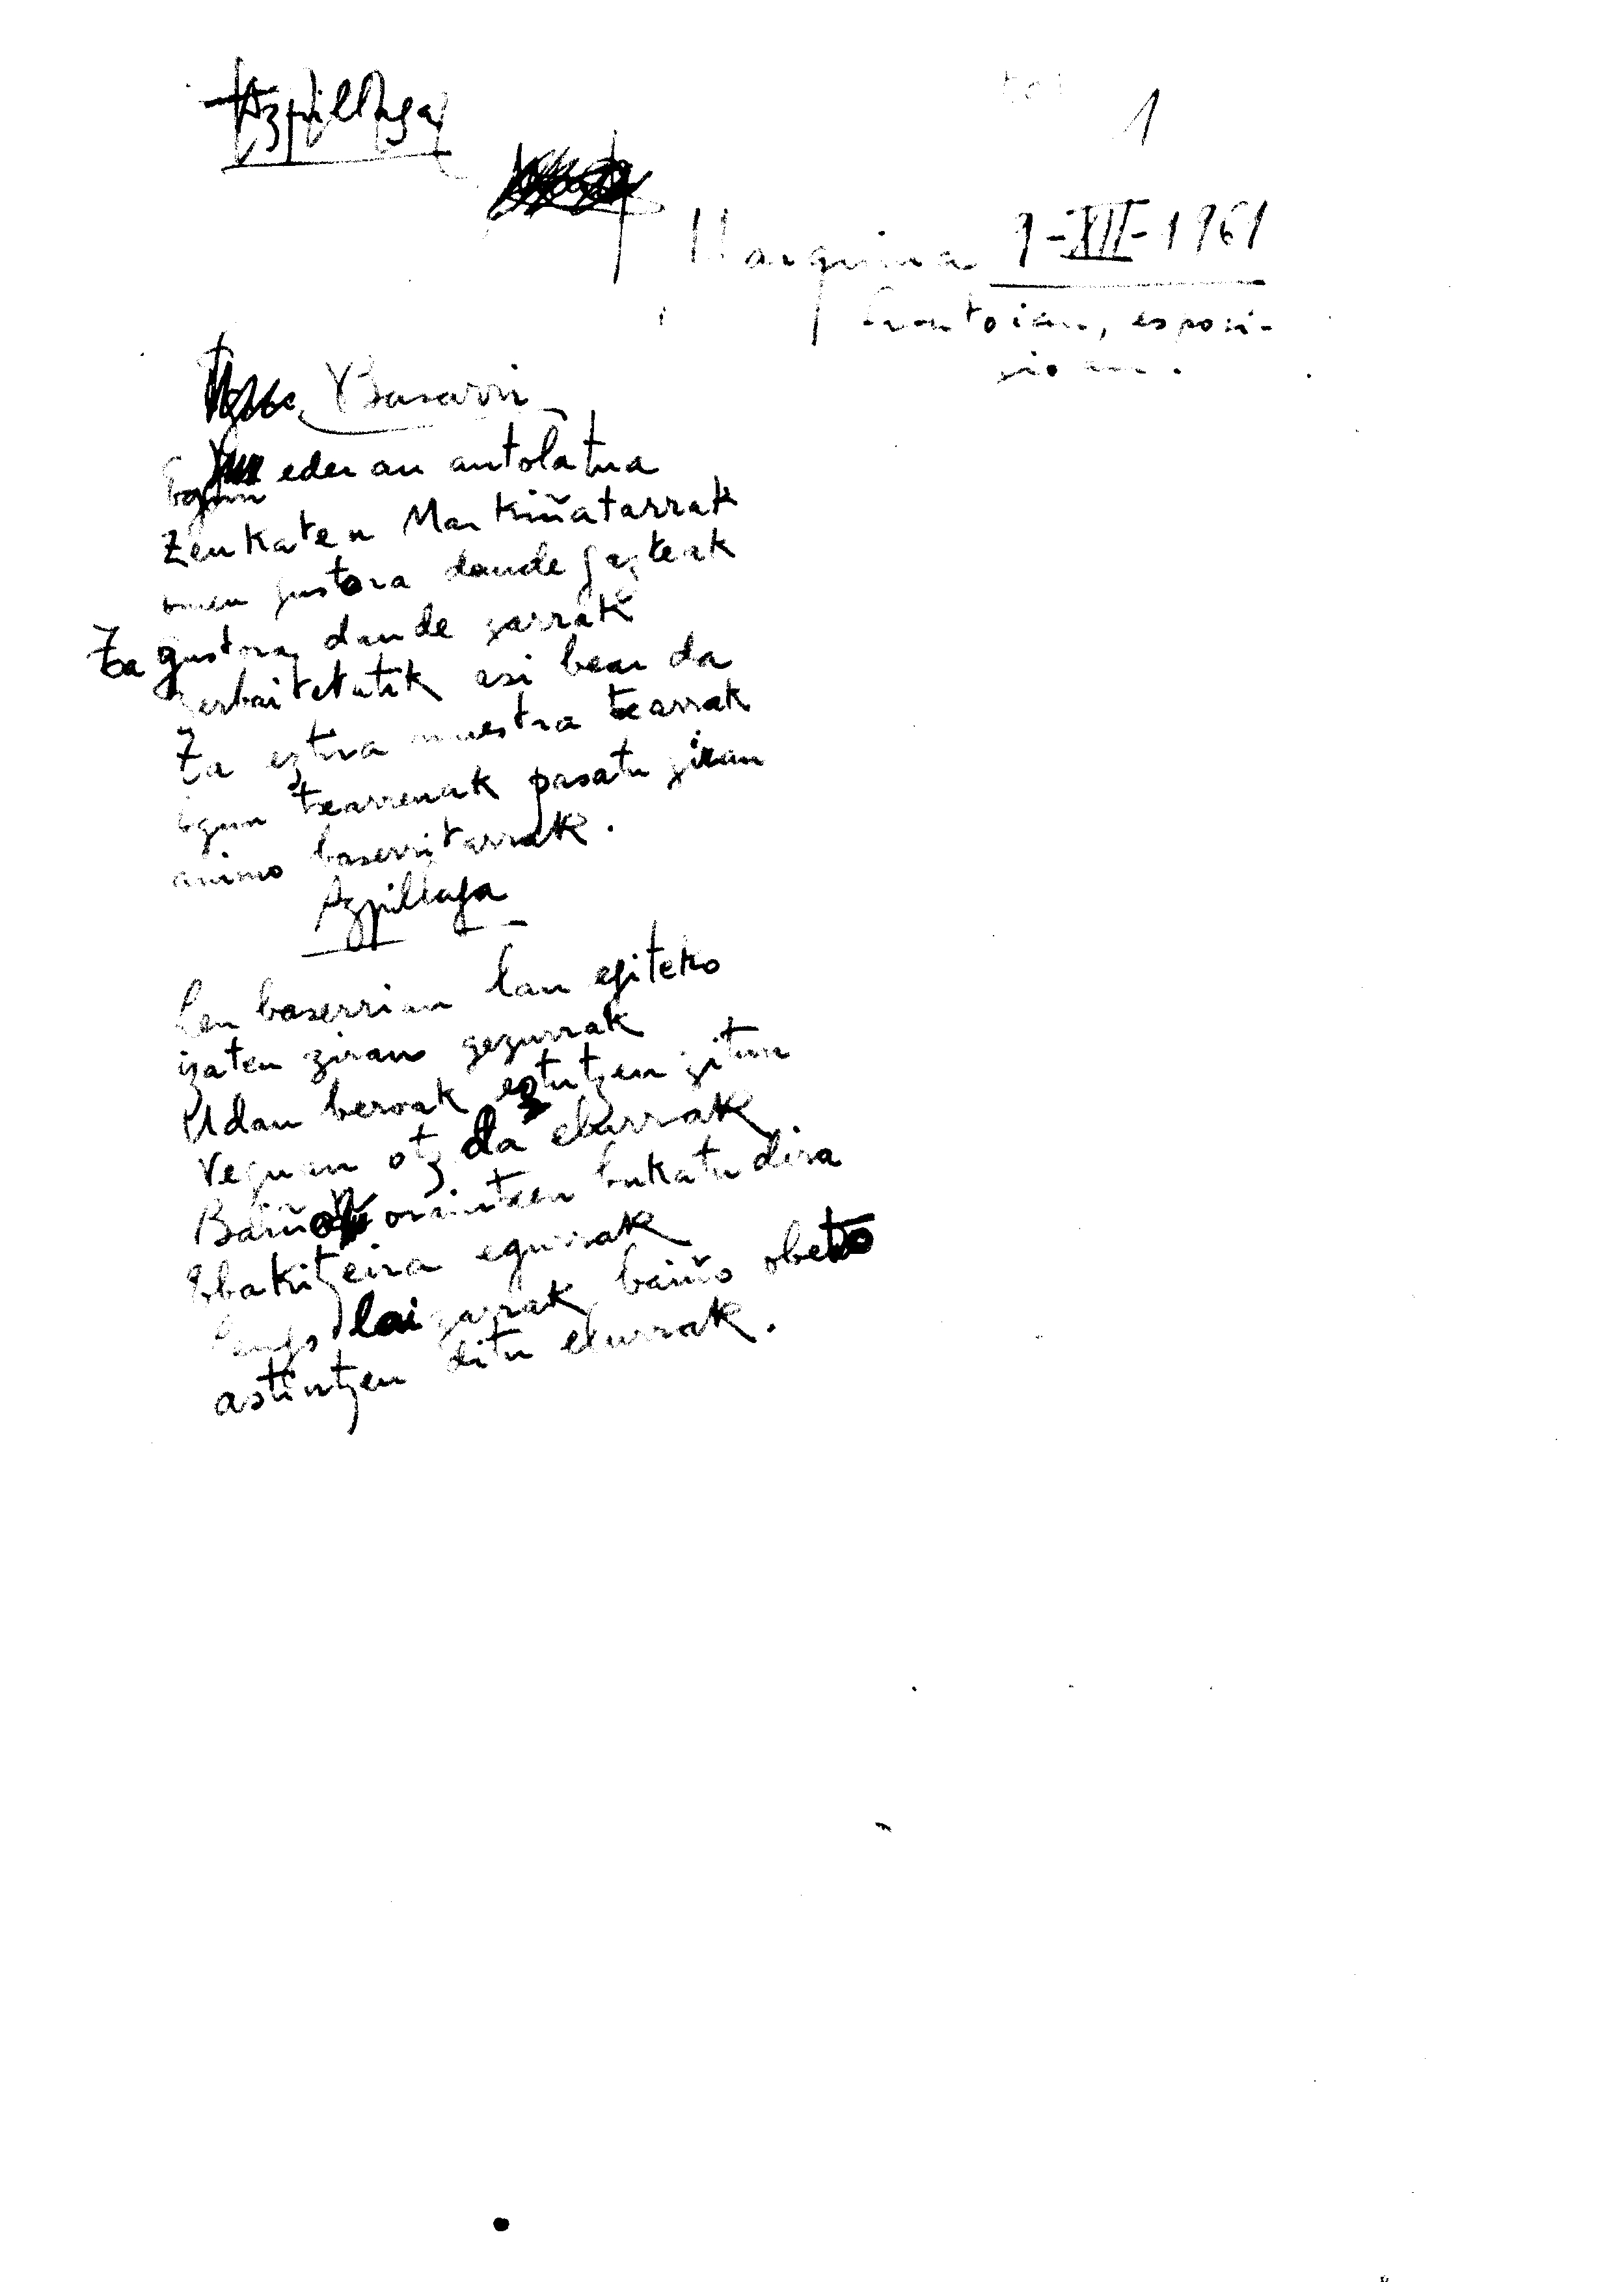 Azpillaga
1
Marquina 9-XII-1961
frontoian, esposi-
zioan.
Basarri
Egun eder au antolatua
zenkaten Markiñatarrak
emen gustora daude gazteak
ta gustora daude zarrak
zerbaitetatik asi bear da
ta eztira muestra txarrak
egun txarrenak pasatu ziran
animo baserritarrak.
Azpillaga
Len baserrian lan egiteko
izaten ziran gezurrak
Udan beroak estutzen zitun
neguan otz da elurrak
Baiña oraintxen bukatu dira
ebakitzeira egurrak
lengo laizarrak baiño obeto
astintzen ditu elurrak.